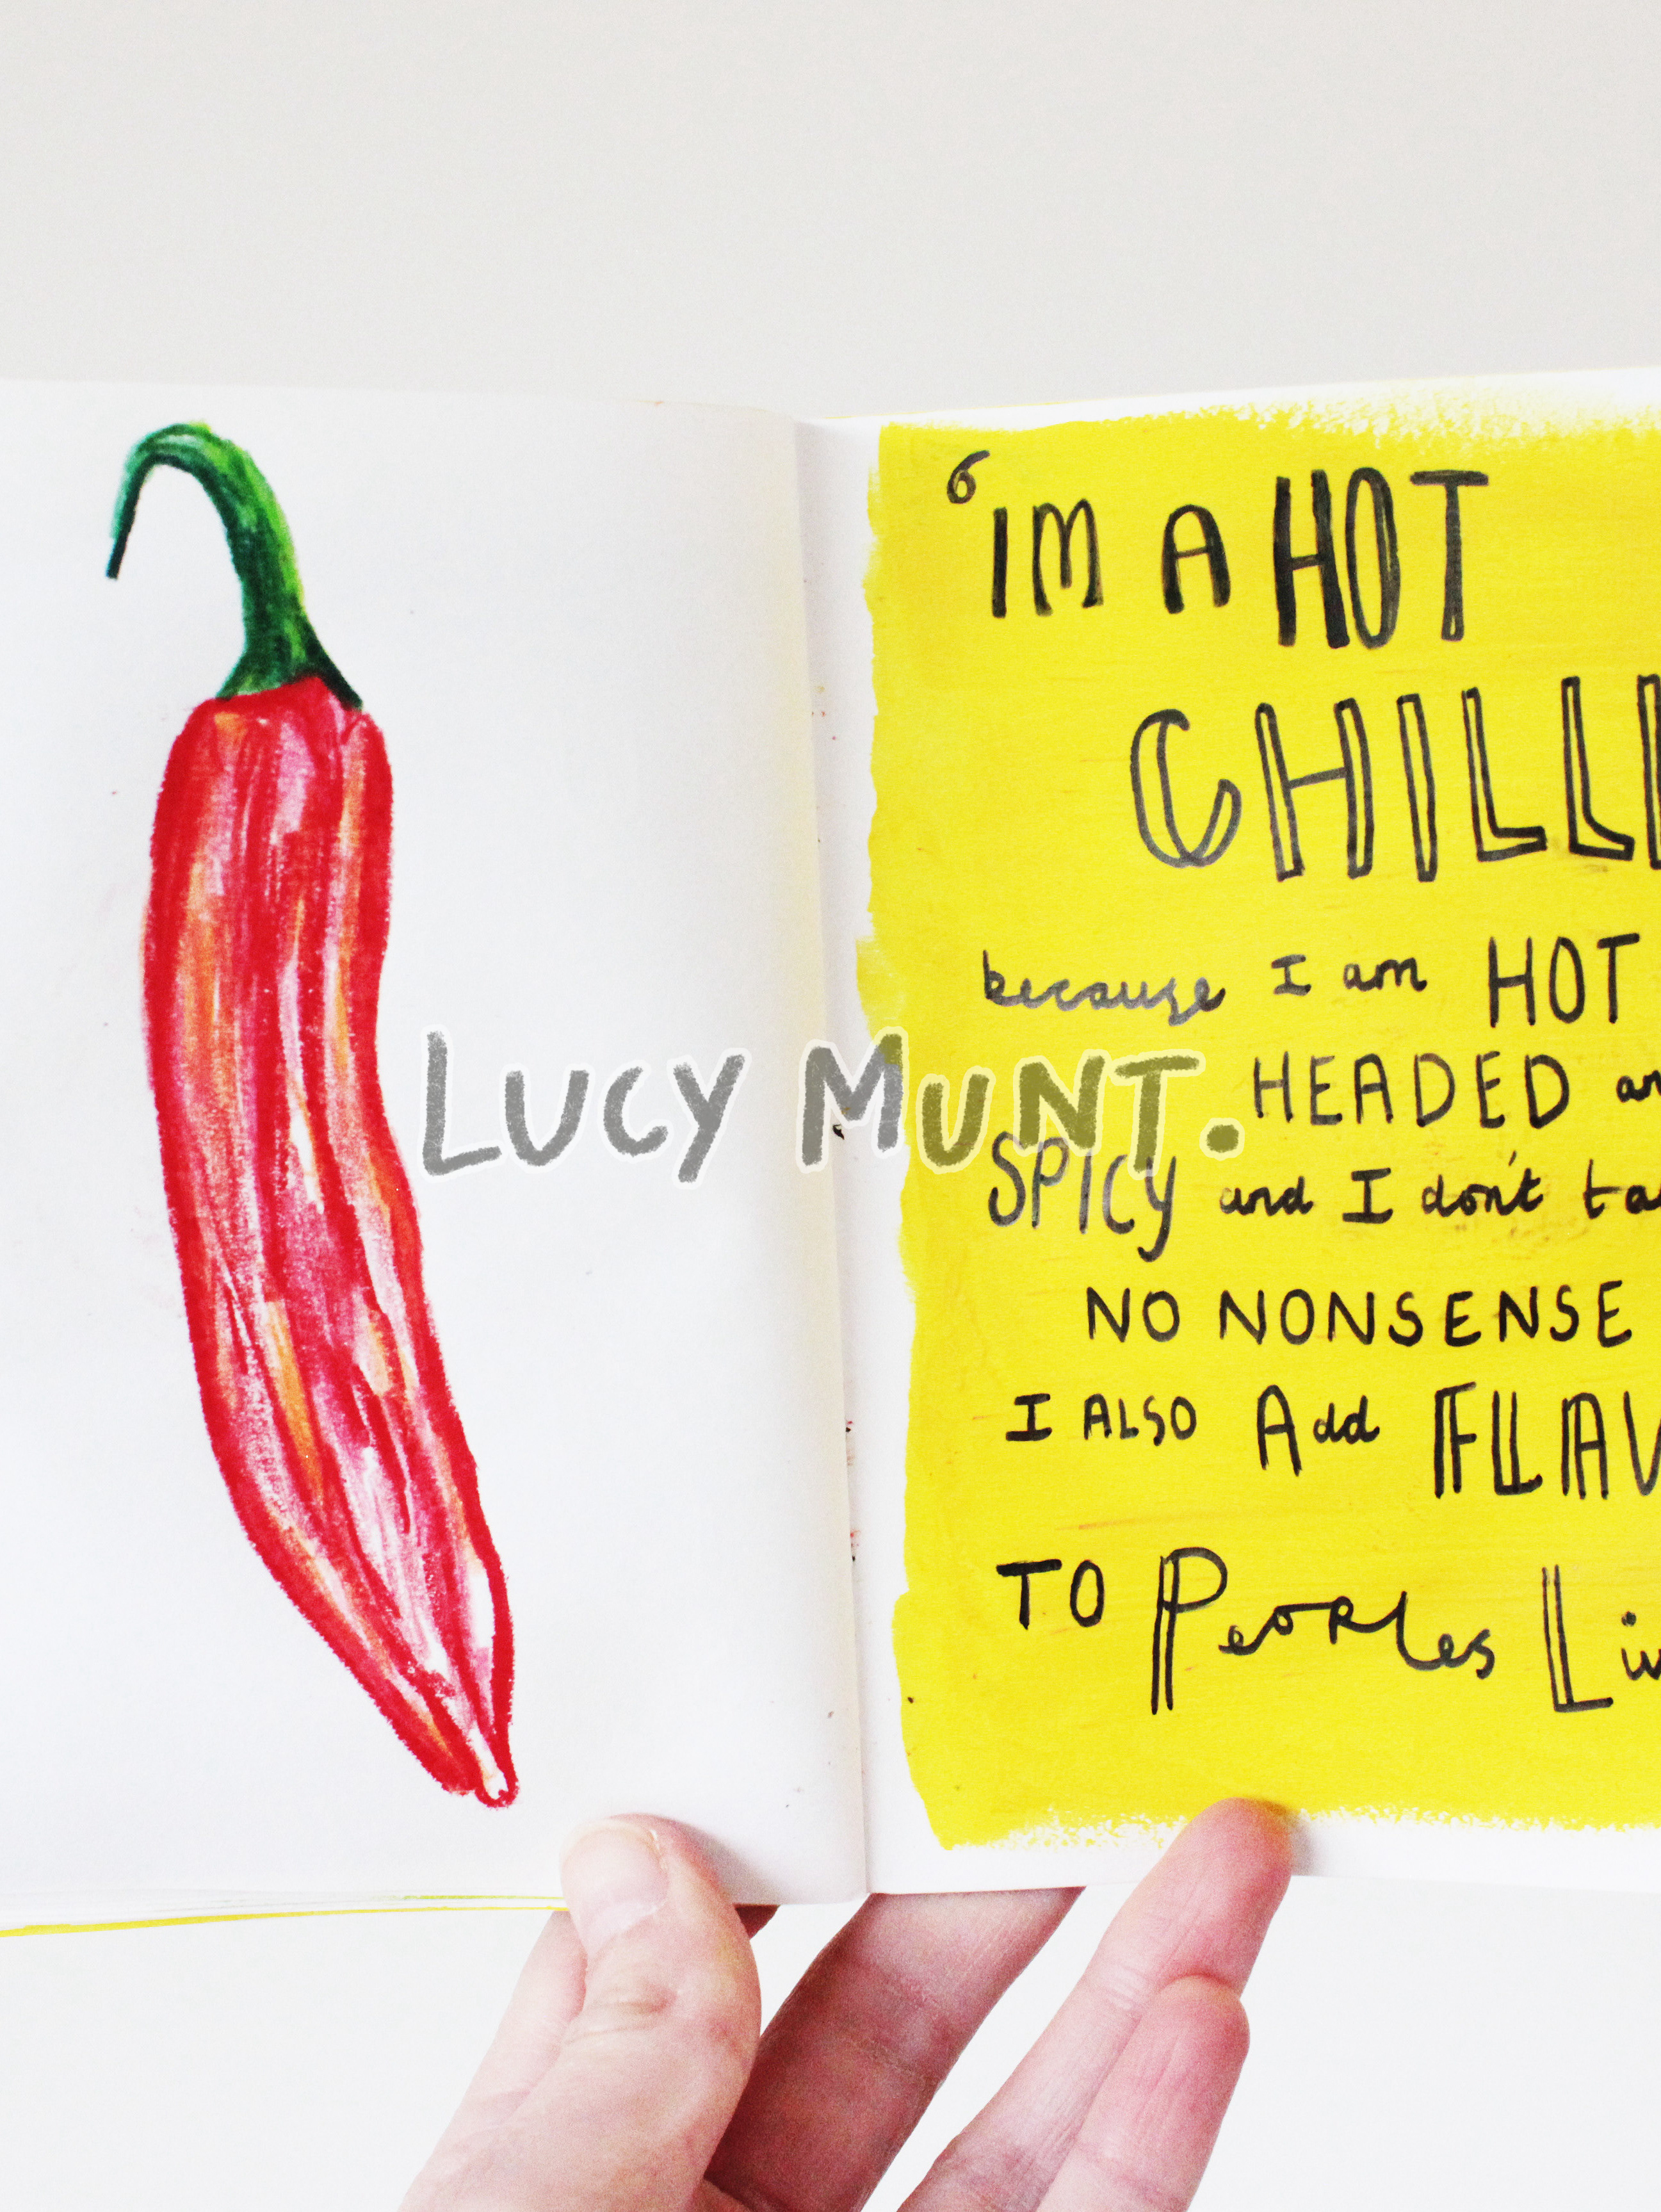 ‘IM A HOT
CHILLI
because I am HOT
HEADED
SPICY and I don't
NO NONSENSE
I ALSO Add
TO PEOPLES
LUCY MUNT.